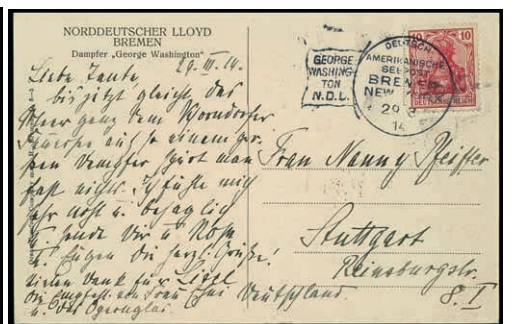 NORDDEUTSCHER LLOYD
BREMEN
Dampfer „George Washington"
29. III. 14.
Liebe Tante,
bis jetzt gleicht das
Meer ganz dem
auf so einem gro-
ßen Dampfer spürt man
fast nichts. Ich fühle mich
sehr wohl u. behaglich
u. sende Dir u.
u. Eugen die herzl. Grüße!
Vielen Dank für
von Frau
u. das Opernglas.
GEORGE
WASHING-
TON
N.D.L.
DEUTSCH
AMERIKANISCHE
SEEPOST
BREMEN
NEW
29 3
14
10 10
DEUTSCHES REICH
Frau Nanny Pfeiffer
Stuttgart
Reinsburgstr.
8. I
Deutschland.